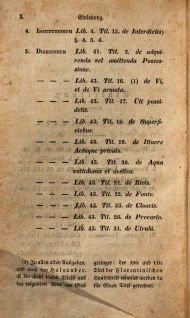 X Einleitung.
4. INSTITUTIONEN Lib. 4. Tit. 15. de Interdictis
§. 4. 5. 6.
5. DIGESTORUM Lib. 41. Tit. 2. de adqui-
renda vel amittenda Posses-
sione.
— — — Lib. 43. Tit. 16. (1) de Vi,
et de Vi armata.
— — — Lib. 43. Tit. 17. Uti possi-
detis.
— — — Lib. 43. Tit. 18. de Superfi-
ciebus.
— — — Lib. 43. Tit. 19. de Itinere
Actuque privato.
— — — Lib. 43. Tit. 20. de Aqua
cottidiana et aestiva.
— — — Lib. 43. Tit. 21. de Rivis.
— — — Lib. 43. Tit. 22. de Fonte.
— — — Lib. 43. Tit. 23. de Cloacis.
— — — Lib. 43. Tit. 26. de Precario.
— — — Lib. 43. Tit. 31. de Utrubi.
(1) In allen alten Ausgaben,
und auch bey Haloander,
ist die Zahl dieses Titels und
der folgenden Eins von
geringer: der 16te und 17te
Titel der Florentinischen
Handschrift nämlich werden da
für Einen Titel gerechnet.